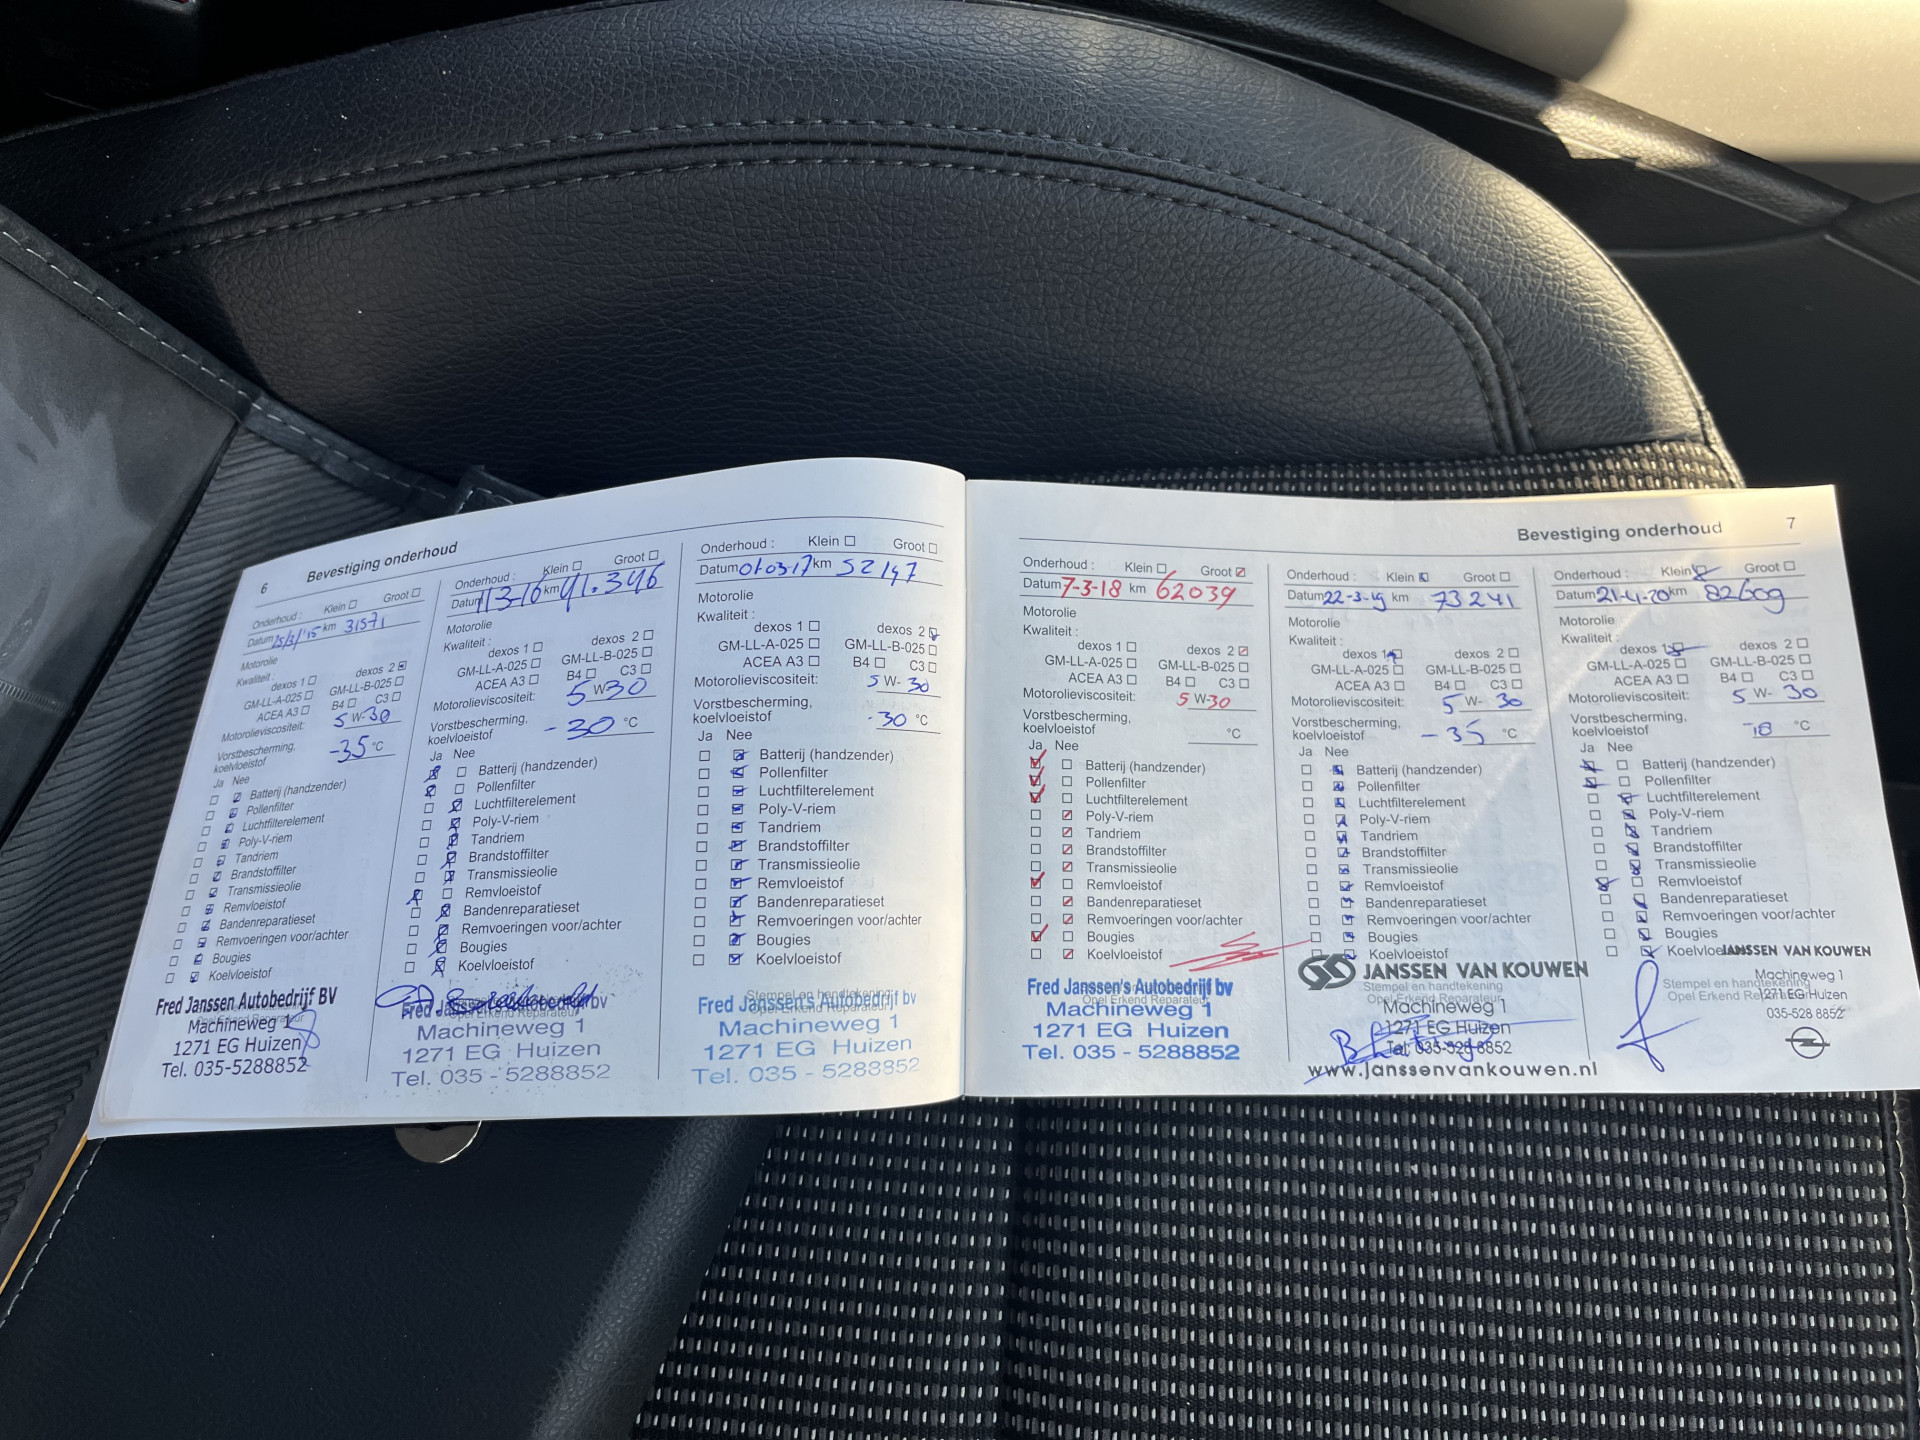 6
Bevestiging onderhoud
Onderhoud : Klein Groot
Datum 25/3/'15 km 31571
Motorolie
Kwaliteit :
dexos 1 dexos 2
GM-LL-A-025 GM-LL-B-025
ACEA A3 B4 C3
Motorolieviscositeit: 5 W-30
Vorstbescherming,
koelvloeistof -35 °C
Ja Nee
Batterij (handzender)
Pollenfilter
Luchtfilterelement
Poly-V-riem
Tandriem
Brandstoffilter
Transmissieolie
Remvloeistof
Bandenreparatieset
Remvoeringen voor/achter
Bougies
Koelvloeistof
Fred Janssen Autobedrijf BV
Machineweg 1
1271 EG Huizen
Tel. 035-5288852
Onderhoud : Klein Groot
Datum 11-3-16 km 41.346
Motorolie
Kwaliteit :
dexos 1 dexos 2
GM-LL-A-025 GM-LL-B-025
ACEA A3 B4 C3
Motorolieviscositeit: 5 W 30
Vorstbescherming,
koelvloeistof -30 °C
Ja Nee
Batterij (handzender)
Pollenfilter
Luchtfilterelement
Poly-V-riem
Tandriem
Brandstoffilter
Transmissieolie
Remvloeistof
Bandenreparatieset
Remvoeringen voor/achter
Bougies
Koelvloeistof
Fred Janssen's Autobedrijf bv
Opel Erkend Reparateur
Machineweg 1
1271 EG Huizen
Tel. 035 - 5288852
Onderhoud : Klein Groot
Datum 01-03-17 km 52147
Motorolie
Kwaliteit :
dexos 1 dexos 2
GM-LL-A-025 GM-LL-B-025
ACEA A3 B4 C3
Motorolieviscositeit: 5 W- 30
Vorstbescherming,
koelvloeistof -30 °C
Ja Nee
Batterij (handzender)
Pollenfilter
Luchtfilterelement
Poly-V-riem
Tandriem
Brandstoffilter
Transmissieolie
Remvloeistof
Bandenreparatieset
Remvoeringen voor/achter
Bougies
Koelvloeistof
Stempel en handtekening
Fred Janssen's Autobedrijf bv
Opel Erkend Reparateur
Machineweg 1
1271 EG Huizen
Tel. 035 - 5288852
Bevestiging onderhoud 7
Onderhoud : Klein Groot
Datum 7-3-18 km 62039
Motorolie
Kwaliteit :
dexos 1 dexos 2
GM-LL-A-025 GM-LL-B-025
ACEA A3 B4 C3
Motorolieviscositeit: 5 W-30
Vorstbescherming,
koelvloeistof °C
Ja Nee
Batterij (handzender)
Pollenfilter
Luchtfilterelement
Poly-V-riem
Tandriem
Brandstoffilter
Transmissieolie
Remvloeistof
Bandenreparatieset
Remvoeringen voor/achter
Bougies
Koelvloeistof
Fred Janssen's Autobedrijf bv
Opel Erkend Reparateur
Machineweg 1
1271 EG Huizen
Tel. 035 - 5288852
Onderhoud : Klein Groot
Datum 22-3-19 km 73241
Motorolie
Kwaliteit :
dexos 1 dexos 2
GM-LL-A-025 GM-LL-B-025
ACEA A3 B4 C3
Motorolieviscositeit: 5 W- 30
Vorstbescherming,
koelvloeistof -35 °C
Ja Nee
Batterij (handzender)
Pollenfilter
Luchtfilterelement
Poly-V-riem
Tandriem
Brandstoffilter
Transmissieolie
Remvloeistof
Bandenreparatieset
Remvoeringen voor/achter
Bougies
Koelvloeistof
JANSSEN VAN KOUWEN
Stempel en handtekening
Opel Erkend Reparateur
Machineweg 1
1271 EG Huizen
Tel. 035-528 8852
www.janssenvankouwen.nl
Onderhoud : Klein Groot
Datum 21-4-20 km 82609
Motorolie
Kwaliteit :
dexos 1 dexos 2
GM-LL-A-025 GM-LL-B-025
ACEA A3 B4 C3
Motorolieviscositeit: 5 W- 30
Vorstbescherming,
koelvloeistof -18 °C
Ja Nee
Batterij (handzender)
Pollenfilter
Luchtfilterelement
Poly-V-riem
Tandriem
Brandstoffilter
Transmissieolie
Remvloeistof
Bandenreparatieset
Remvoeringen voor/achter
Bougies
Koelvloeistof
JANSSEN VAN KOUWEN
Machineweg 1
Stempel en handtekening
Opel Erkend Reparateur
1271 EG Huizen
035-528 8852